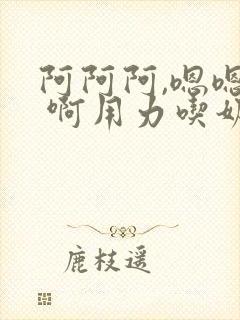 阿阿阿,嗯嗯
啊用力喫奶
鹿枝遥